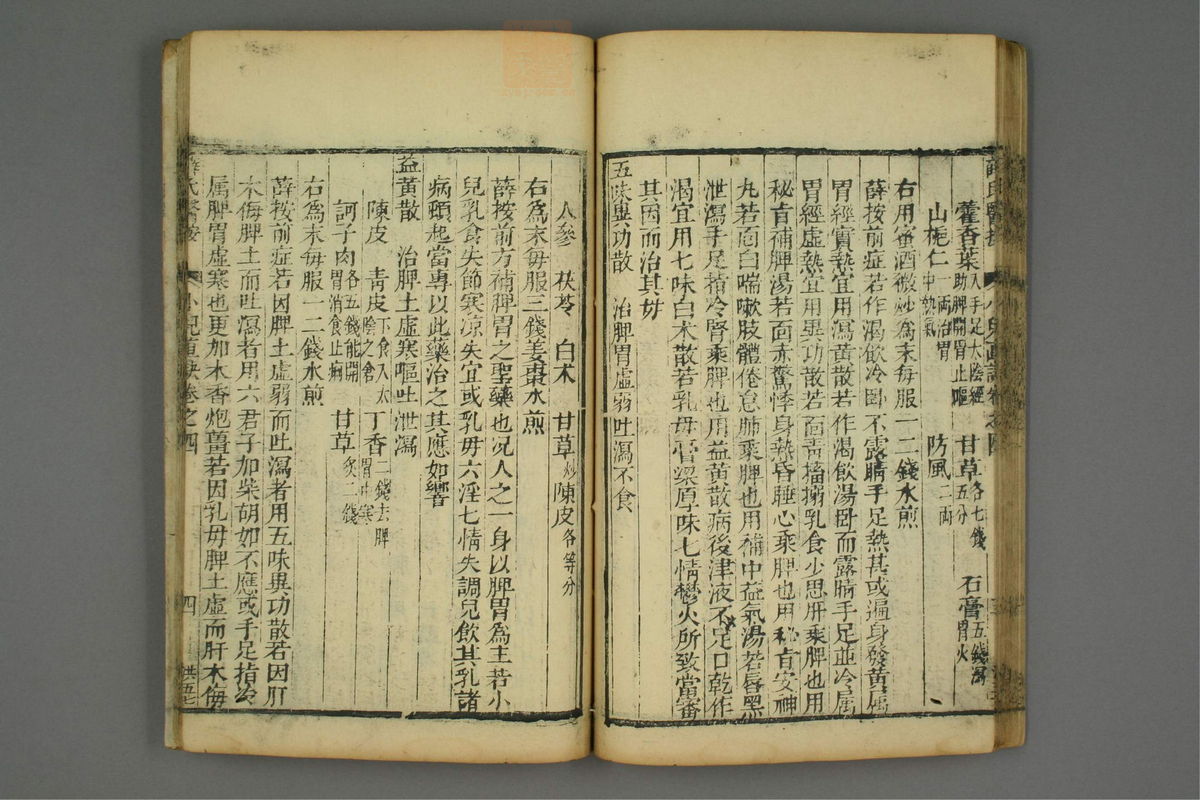 藿香葉入手足太陰經助脾開胃止嘔 甘草各七錢五分 石膏五錢瀉胃火
山梔仁一兩治胃中熱氣 防風二兩
右用蜜酒微炒爲末每服一二錢水煎
薛按前症若作渴飲冷卧不露睛手足熱甚或遍身發黃屬
胃經實熱宜用瀉黃散若作渴飲湯卧而露睛手足並冷屬
胃經虛熱宜用異功散若面靑搐搦乳食少思肝乘脾也用
秘旨補脾湯若面赤驚悸身熱昏睡心乘脾也用秘旨安神
丸若面白喘嗽肢體倦怠肺乘脾也用補中益氣湯若唇黑
泄瀉手足指冷腎乘脾也用益黃散病後津液不足口乾作
渴宜用七味白术散若乳母膏粱厚味七情鬱火所致當審
其因而治其母
五味異功散 治脾胃虛弱吐瀉不食
人參 茯苓 白术 甘草炒 陳皮各等分
右爲末每服三錢姜棗水煎
薛按前方補脾胃之聖藥也况人之一身以脾胃爲主若小
兒乳食失節寒凉失宜或乳母六淫七情失調兒飲其乳諸
病頤起當專以此藥治之其應如響
益黃散 治脾土虛寒嘔吐泄瀉
陳皮 靑皮下食入太陰之倉 丁香二錢去脾胃中寒
訶子肉各五錢能開胃消食止痢 甘草炙二錢
右爲末每服一二錢水煎
薛按前症若因脾土虛弱而吐瀉者用五味異功散若因肝
木侮脾土而吐瀉者用六君子加柴胡如不應或手足指冷
屬脾胃虛寒也更加木香炮薑若因乳母脾土虛而肝木侮
薛氏醫按 小兒直訣卷之四 四